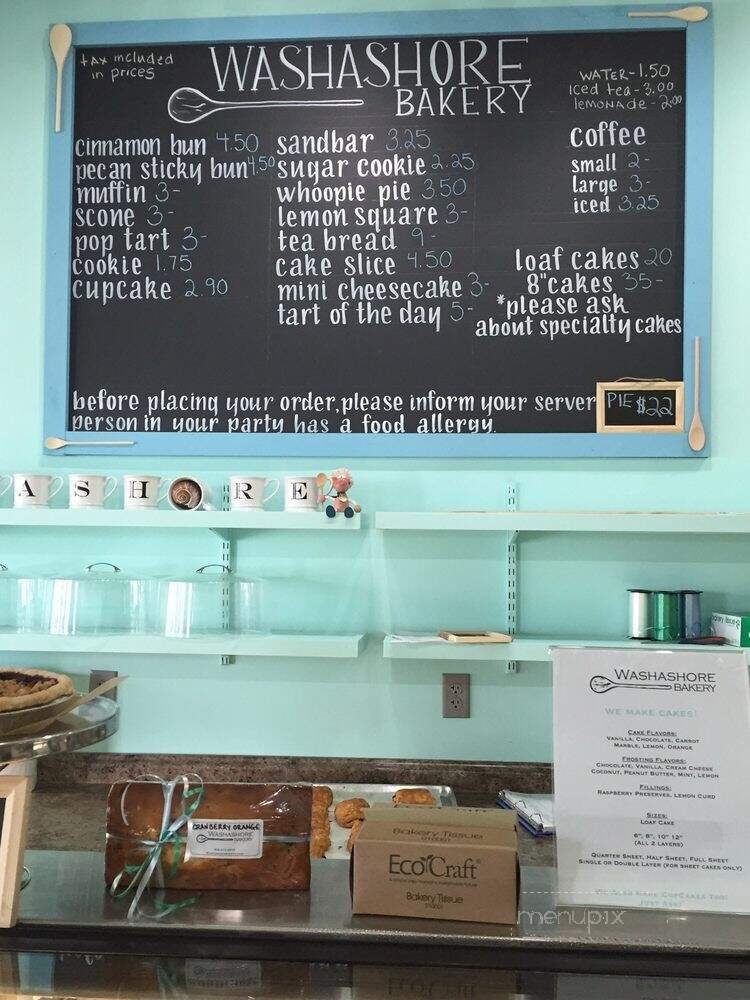 tax included
in prices
WASHASHORE
BAKERY
WATER-1.50
iced tea-3.00
lemonade-2.00
cinnamon bun 4.50
pecan sticky bun 4.50
muffin 3-
scone 3-
pop tart 3-
cookie 1.75
cupcake 2.90
sandbar 3.25
sugar cookie 2.25
whoopie pie 3.50
lemon square 3-
tea bread 9-
cake slice 4.50
mini cheesecake 3-
tart of the day 5-
coffee
small 2-
large 3-
iced 3.25
loaf cakes 20
8"cakes 35-
*please ask
about specialty cakes
before placing your order, please inform your server
person in your party has a food allergy.
PIE $22
A S H R E
WASHASHORE
BAKERY
WE MAKE CAKES!
CAKE FLAVORS:
VANILLA, CHOCOLATE, CARROT
MARBLE, LEMON, ORANGE
FROSTING FLAVORS:
CHOCOLATE, VANILLA, CREAM CHEESE
COCONUT, PEANUT BUTTER, MINT, LEMON
FILLINGS:
RASPBERRY PRESERVES, LEMON CURD
SIZES:
LOAF CAKE
6", 8", 10" 12"
(ALL 2 LAYERS)
QUARTER SHEET, HALF SHEET, FULL SHEET
SINGLE OR DOUBLE LAYER (FOR SHEET CAKES ONLY)
WE ALSO MAKE CUPCAKES TOO
JUST ASK!
CRANBERRY ORANGE
WASHASHORE
BAKERY
Bakery Tissue
EcoCraft
Bakery Tissue
menupix